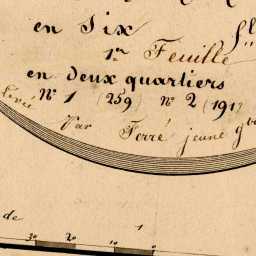 en Six
1re Feuille
en deux quartiers
N° 1 (259) N° 2 (191)
Levé Par Ferré jeune
de
30 20 10 0